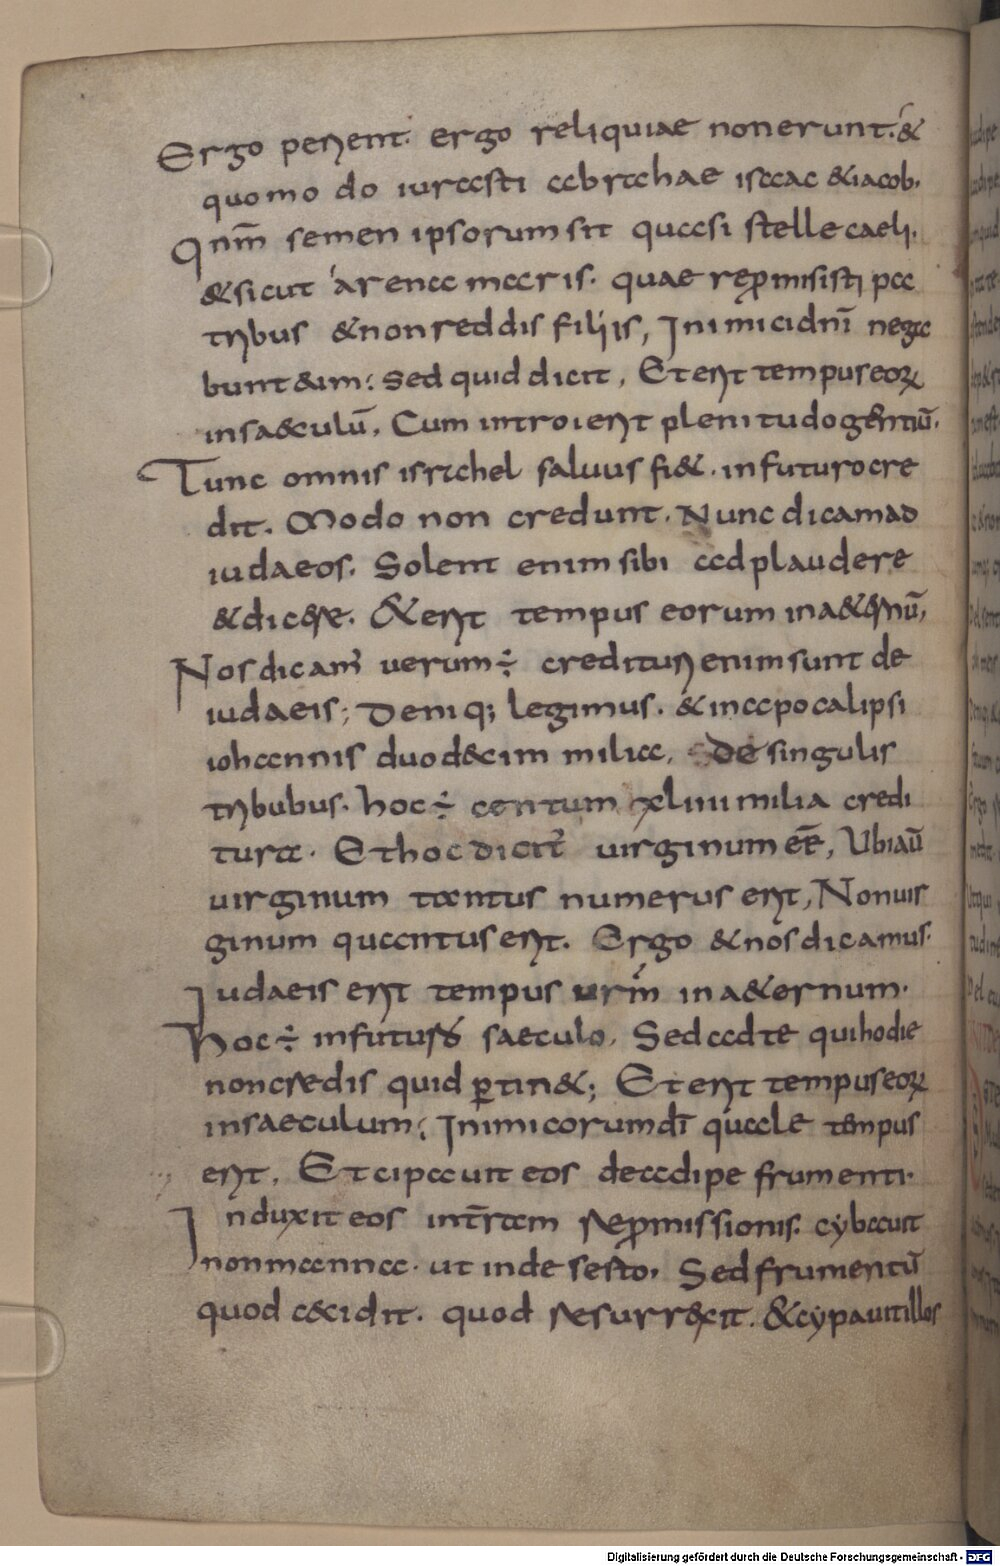 Ergo perient. ergo reliquiae non erunt. &
quomo do iurasti abrahae isaac & iacob.
Qnm̄ semen ipsorum sit quasi stelle caeli.
& sicut arena maris. quae rep̄misisti pa
tribus & non reddis filiis, Inimici dnī nega
bunt & im: sed quid dicit, Et erit tempus eoꝝ
in sa&culū, Cum introierit plenitudo gentiū.
Tunc omnis israhel saluus fi&. in futuro cre
dit. Modo non credunt. Nunc dicam ad
iudaeos. Solent enim sibi adplaudere
& dicere. & erit tempus eorum in a&ernū,
Nos dicam' uerum ÷ credituri enim sunt de
iudaeis; Deniq; legimus. & in apocalipsi
iohannis duod&cim milia, De singulis
tribubus. hoc ÷ centum xliiii milia credi
tura. Et hoc dicit' uirginum eē, Ubi aū
uirginum tantus numerus erit, Non uis
ginum quantus erit. Ergo & nos dicamus.
Iudaeis erit tempus urm̄ in a&ernum.
hoc ÷ in futuro saeculo. Sed ad te qui hodie
non credis quid ꝑtin&; Et erit tempus eoꝝ
in saeculum; Inimicorum dī quale tempus
erit. Et cipauit eos de adipe frumenti.
Induxit eos in tr̄ram rep̄missionis. cybauit
non manna. ut in deserto. Sed frumentū
quod c&cidit. quod resurrexit. & cypauit illos
Digitalisierung gefördert durch die Deutsche Forschungsgemeinschaft - DFG